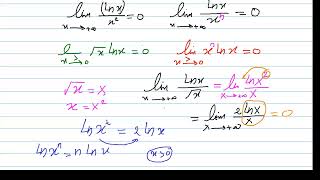 lim x→+∞ (lnx)/x² = 0    lim x→+∞ lnx/xⁿ = 0
l x→0 √x lnx = 0    lim x→0 x²lnx = 0
√x = X    lim x→+∞ lnx/√x = lim X→+∞ lnX²/X
x = X²    = lim X→+∞ 2lnX/X = 0
lnx² = 2lnx
lnxⁿ = n lnx    x>0